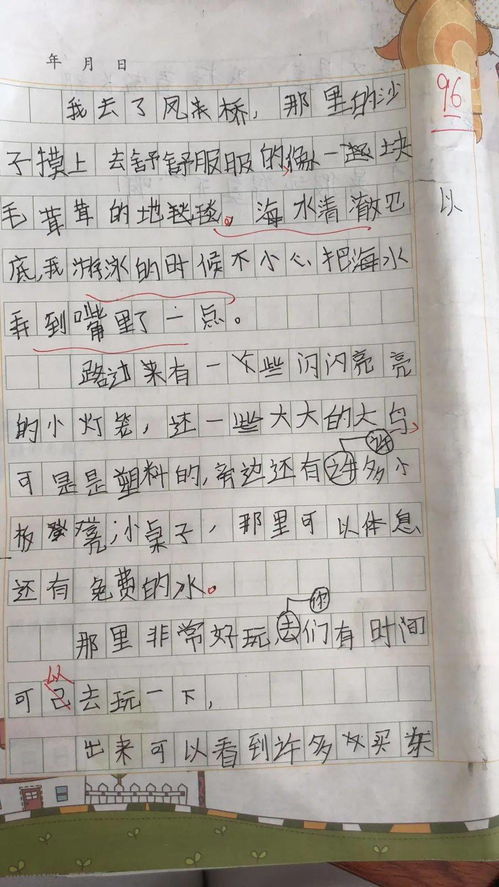 年 月 日
96
我去了风来桥，那里的沙
子摸上去舒舒服服的像一块
毛茸茸的地毯毯。海水清澈见
以
底，我游泳的时候不小心把海水
弄到嘴里了一点。
路过来有一些闪闪亮亮
的小灯笼，还一些大大的大鸟，
许
可是是塑料的，旁边还有午多小
板凳小桌子，那里可以体息
还有免费的水。
你
那里非常好玩，去们有时间
以
可己去玩一下，
出来可以看到许多买东